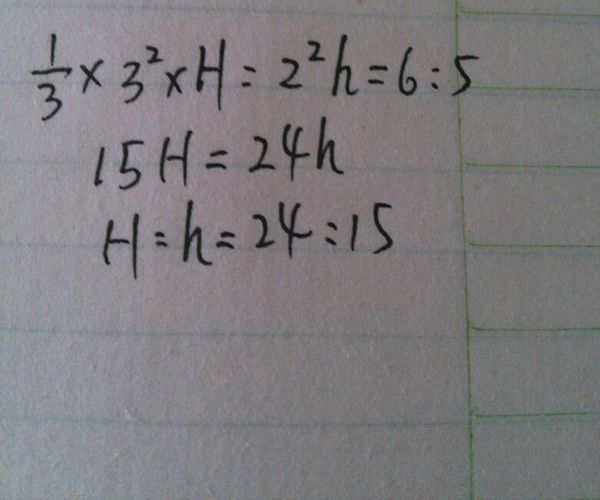 1/3 × 3² × H = 2²h = 6 : 5
15H = 24h
H = h = 24 : 15